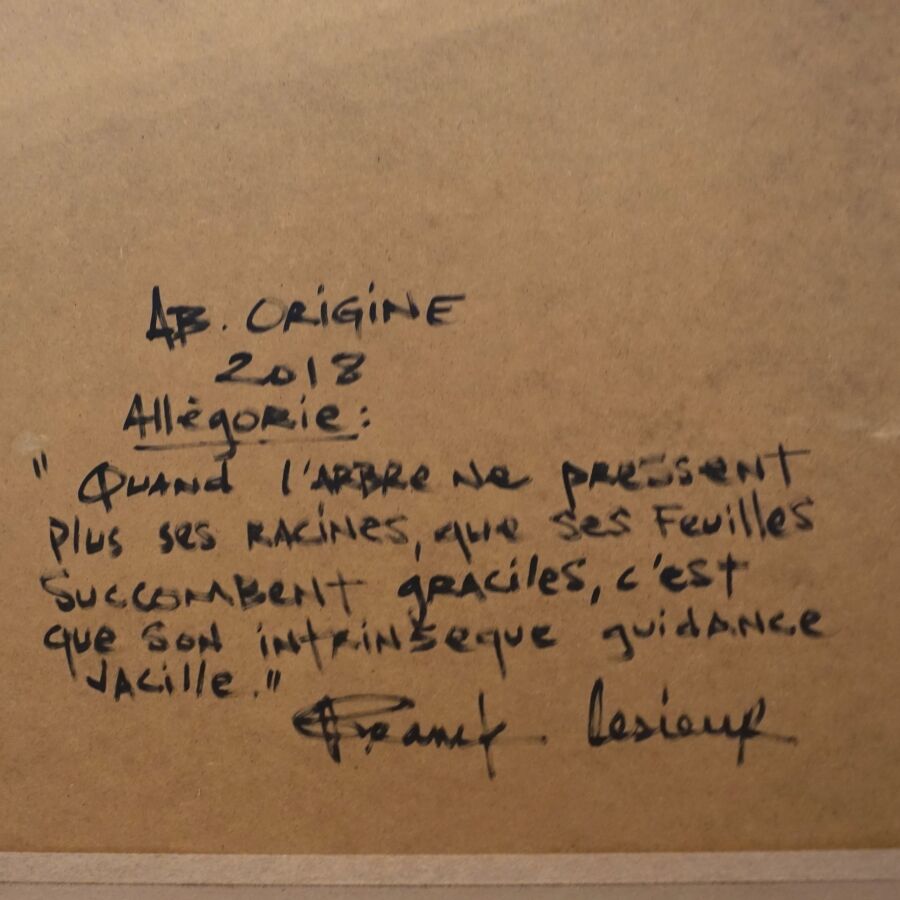 AB. ORIGINE
2018
Allégorie:
" QUAND l'ARBRE NE PRESSENT
plus ses RACINES, que ses Feuilles
SUCCOMBENT GRACILES, c'est
que SON intrinseque guidance
VACILLE."
Franck Lesieur